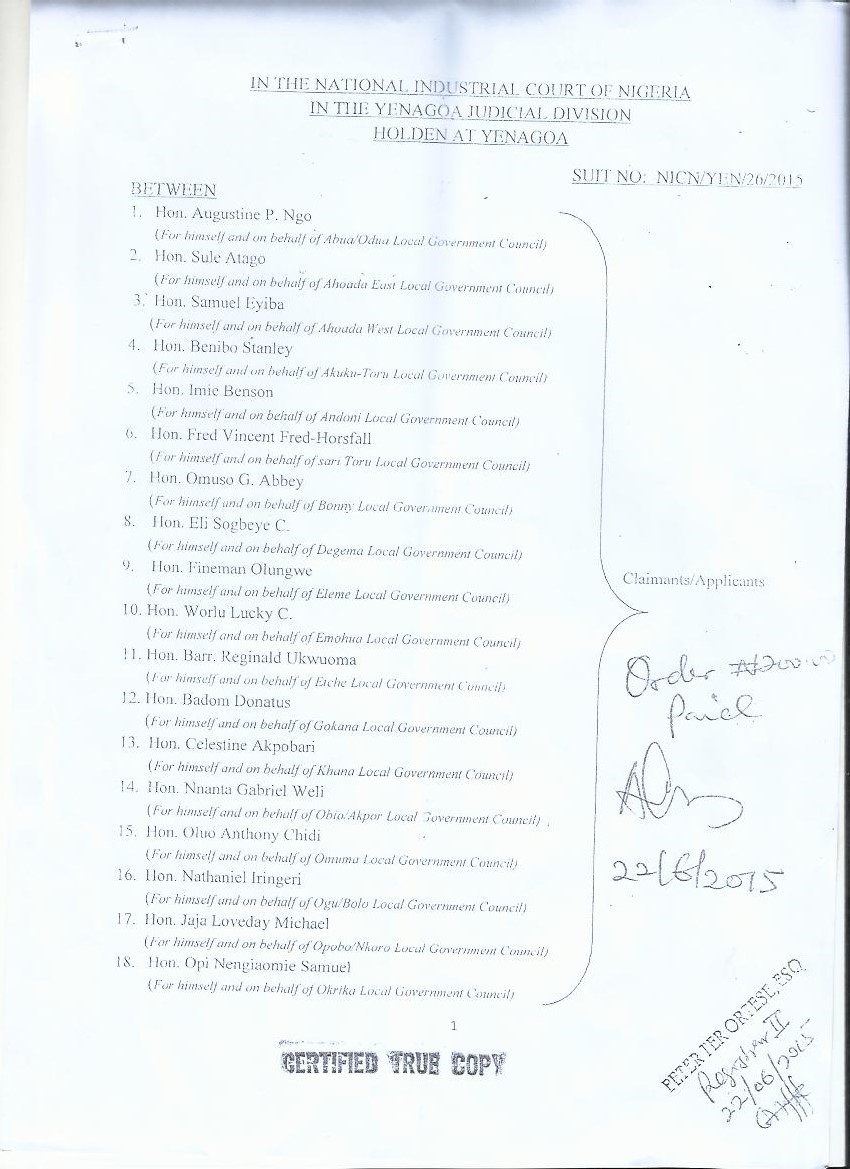 IN THE NATIONAL INDUSTRIAL COURT OF NIGERIA
IN THE YENAGOA JUDICIAL DIVISION
HOLDEN AT YENAGOA
SUIT NO: NICN/YEN/26/2015
BETWEEN
1. Hon. Augustine P. Ngo
(For himself and on behalf of Abua/Odua Local Government Council)
2. Hon. Sule Atago
(For himself and on behalf of Ahoada East Local Government Council)
3. Hon. Samuel Eyiba
(For himself and on behalf of Ahoada West Local Government Council)
4. Hon. Benibo Stanley
(For himself and on behalf of Akuku-Toru Local Government Council)
5. Hon. Imie Benson
(For himself and on behalf of Andoni Local Government Council)
6. Hon. Fred Vincent Fred-Horsfall
(For himself and on behalf of sari Toru Local Government Council)
7. Hon. Omuso G. Abbey
(For himself and on behalf of Bonny Local Government Council)
8. Hon. Eli Sogbeye C.
(For himself and on behalf of Degema Local Government Council)
9. Hon. Fineman Olungwe
(For himself and on behalf of Eleme Local Government Council)
Claimants/Applicants
10. Hon. Worlu Lucky C.
(For himself and on behalf of Emohua Local Government Council)
11. Hon. Barr. Reginald Ukwuoma
(For himself and on behalf of Etche Local Government Council)
12. Hon. Badom Donatus
(For himself and on behalf of Gokana Local Government Council)
13. Hon. Celestine Akpobari
(For himself and on behalf of Khana Local Government Council)
14. Hon. Nnanta Gabriel Weli
(For himself and on behalf of Obio/Akpor Local Government Council)
15. Hon. Oluo Anthony Chidi
(For himself and on behalf of Omuma Local Government Council)
16. Hon. Nathaniel Iringeri
(For himself and on behalf of Ogu/Bolo Local Government Council)
17. Hon. Jaja Loveday Michael
(For himself and on behalf of Opobo/Nkoro Local Government Council)
18. Hon. Opi Nengiaomie Samuel
(For himself and on behalf of Okrika Local Government Council)
Order ₦200.00
Paid
22/6/2015
1
CERTIFIED TRUE COPY
PETER TER ORTESE, ESQ
Registrar II
22/06/2015